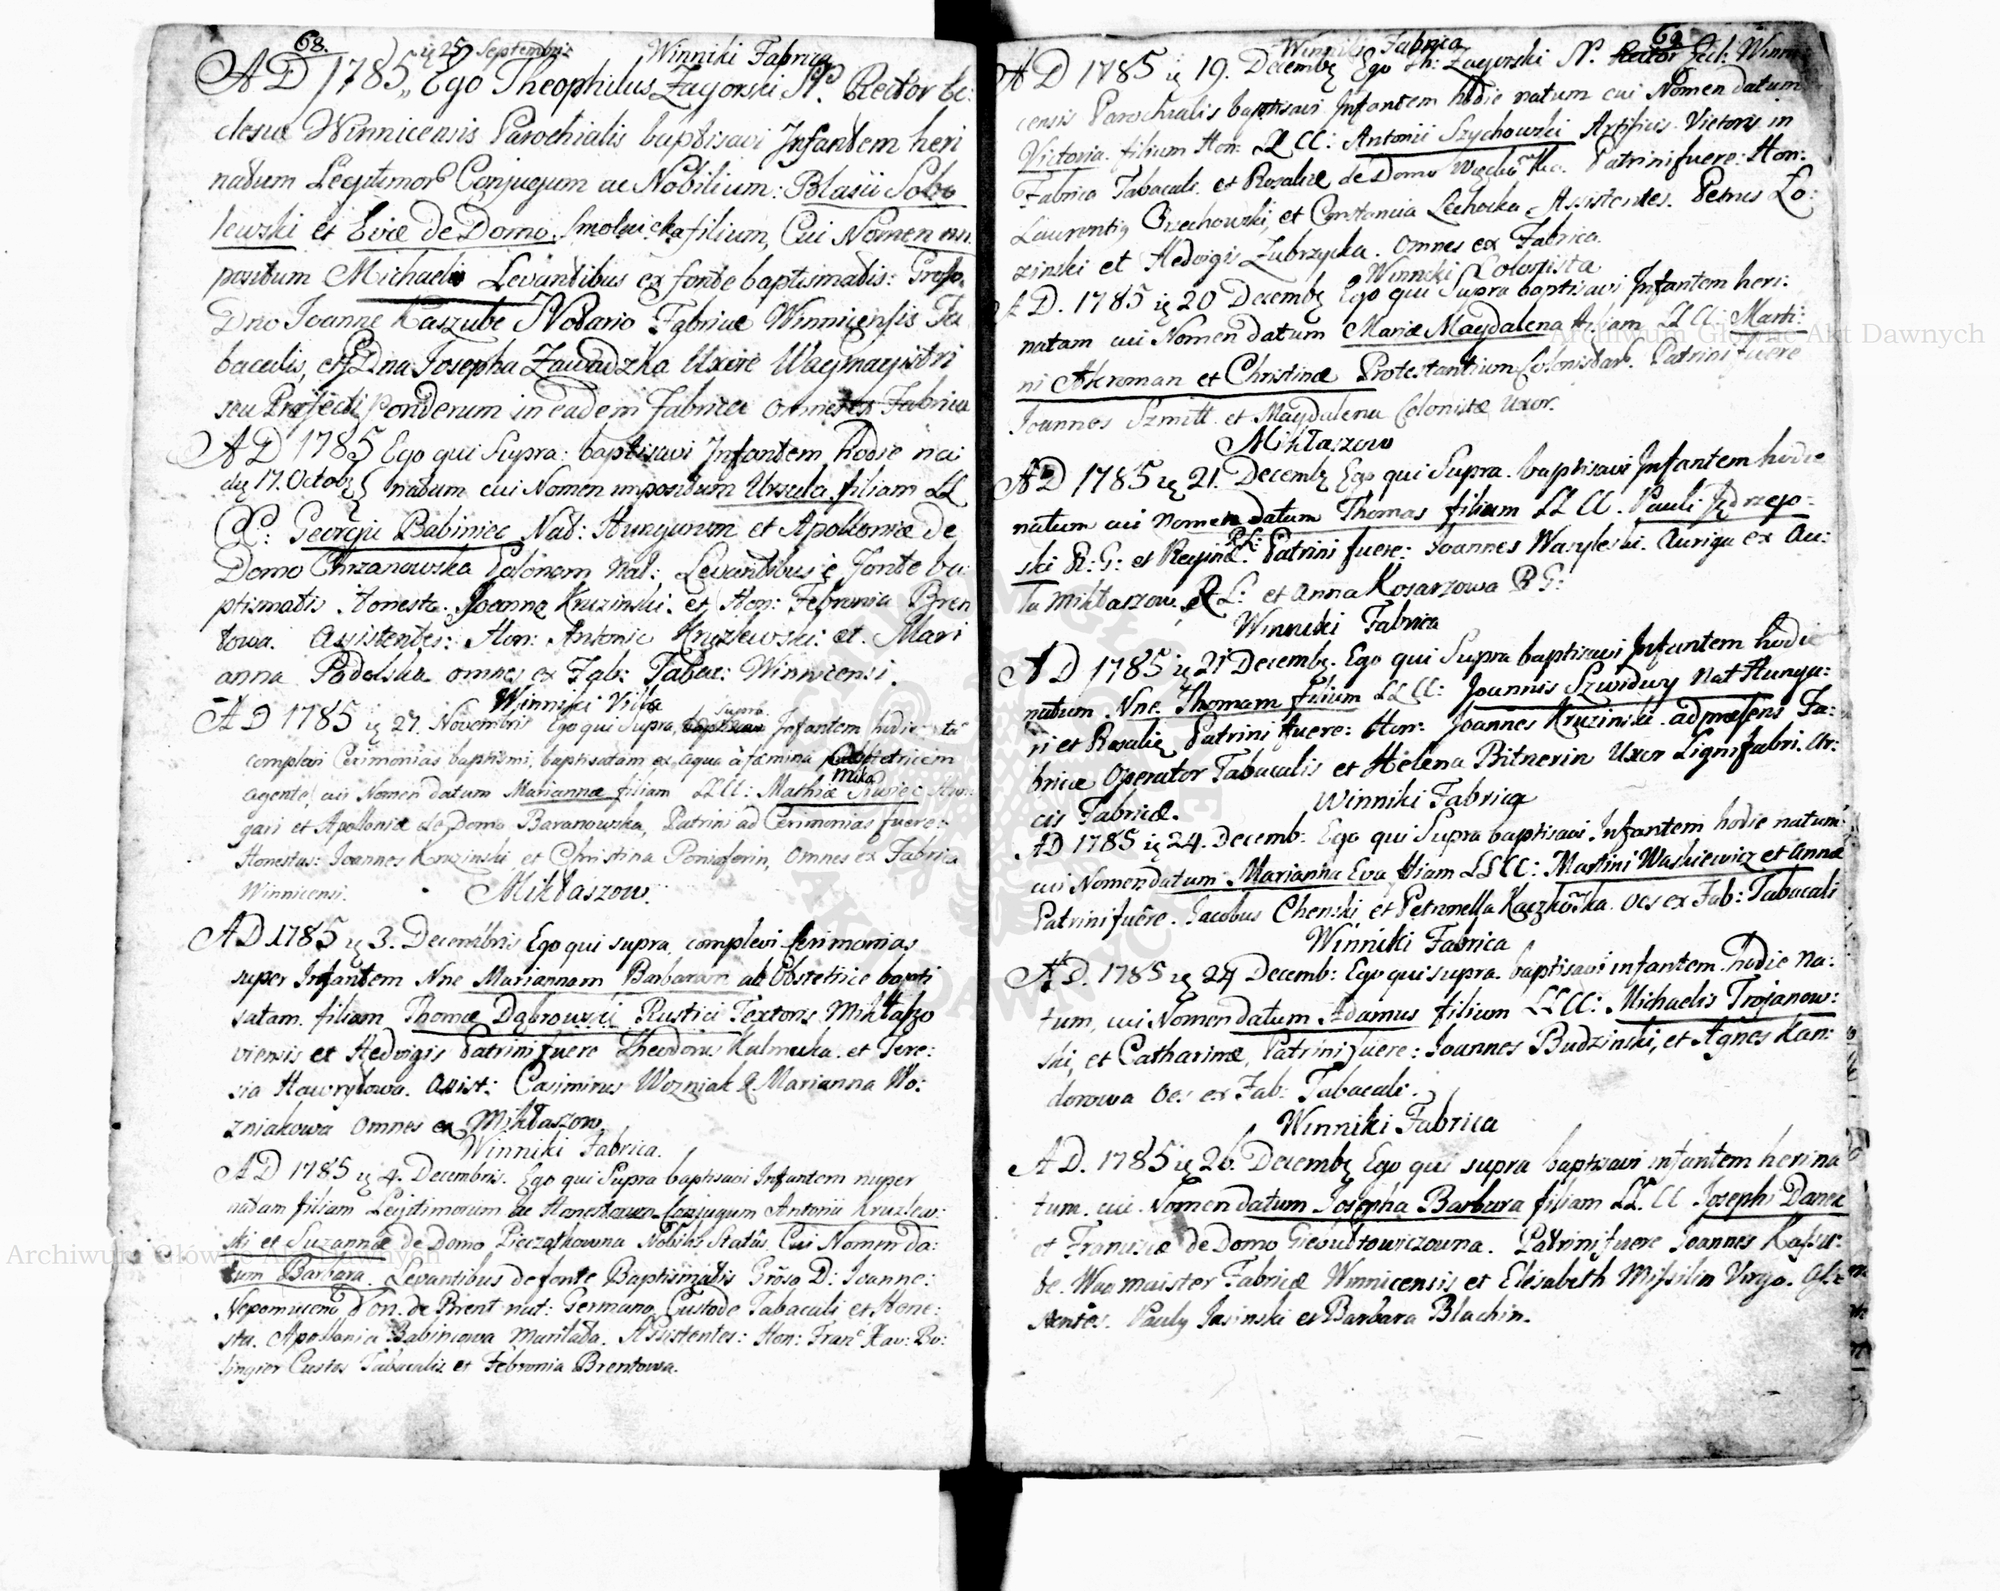 68.
Winniki Fabrica
A D 1785 25 Septembris Ego Theophilus Zagorski Rector Ec:
clesiæ Winnicensis Parochialis baptisavi Infantem heri
natum Legitimor Conjugum ac Nobilium: Blasii Sobo
lewski et Evæ de Domo Smolnicka filium, Cui Nomen im
positum Michaelis Levantibus ex fonte baptismatis: Groso
Dno Joanne Kaszube Notario Fabricæ Winnicensis Ta
baculis, et Dna Josepha Zawadzka Uxore Wagmagistri
seu Præfecti Ponderum in eadem Fabrica omnes ex Fabrica
A D 1785 Ego qui Supra: baptisavi Infantem hodie na:
17. Octob natum cui Nomen impositum Ursula filiam LL
CC: Georgii Babiniec Nat: Hungarum et Apolloniæ de
Domo Chrzanowska Polonam Nat: Levantibus e Fonte ba
ptismatis Honesto Joanne Kruzinski. et Hon: Febronia Bren
towa. Assistentes: Hon: Antonio Kruzlewski: et Mari
anna Podolska omnes ex Fab: Tabac: Winnicensi.
Winniki Villa
A D 1785 27. Novembris Ego qui Supra Supra Infantem hodie
complevi Cerimonias baptismi, baptisatam ex aqua à fæmina Obstetricem
agente, cui Nomen datum Mariannæ filiam LL CC: Mathiæ
gari et Apolloniæ de Domo Baranowska, Patrini ad Cerimonias fuere:
Honestus: Joannes Kruzinski et Christina Omnes ex Fabrica
Winnicensi.
Mikłaszow.
A D 1785 3. Decembris Ego qui supra complevi Cerimonias
super Infantem Nne Mariannam Barbaram ab Obstetrice bapti
satam filiam Thomæ Dąbrowski Rustici Textoris Mikłaszo
viensis et Hedvigis Patrini fuere Theodorus Kulmuka et Tere:
sia Hawryłowa. Assist: Casimirus Wozniak & Marianna Wo:
zniakowa Omnes ex Mikłaszow.
Winniki Fabrica.
A D 1785 4. Decembris. Ego qui Supra baptisavi Infantem nuper
natam filiam Legitimorum ac Honestorum Conjugum Antonii Kruzlew:
ski et Suzannæ de Domo Pieczątkowna Nobilis Statûs Cui Nomen da:
tum Barbara. Levantibus de fonte Baptismatis Groso D: Joanne:
Nepomuceno de Brent nat: Germano, Custode Tabacali et Hone:
sta. Apollonia Babincowa Maritata. Assistentes: Hon: Franc Xav: Bo:
lingier Custos Tabacalis et Febronia Brentowa.
69
Winniki Fabrica
A D 1785 19. Decemb Ego Th: Zagorski Rector Eccl: Winni
censis Parochialis baptisavi Infantem hodie natum cui Nomen datum
Victoria. filium Hon: LL CC: Antonii Szychowski Artificis Victoris in
Fabrica Tabacali. et Rosaliæ de Domo Patrini fuere: Hon:
Laurentius Orzechowski, et Constancia Lechocka Assistentes. Petrus Lo:
zinski et Hedvigis Zubrzycka. omnes ex Fabrica.
Winniki Colonista
A D. 1785 20 Decemb Ego qui Supra baptisavi Infantem heri:
natam cui Nomen datum Mariæ Magdalena filiam LL CC: Marti:
ni Akroman et Christinæ Protestantium Colonistar. Patrini fuere
Joannes Szmitt et Magdalena Colonistæ Uxor.
Mikłaszow
A D 1785 21. Decemb Ego qui Supra. baptisavi Infantem hodie
natum cui nomen datum Thomas filium LL CC. Pauli Jędrzejo:
ski R: G: et Reginæ R.L: Patrini fuere: Joannes Wasyleski. Auriga ex Au:
la Mikłaszow. R L: et Anna Kosarzowa R G:
Winniki Fabrica
A D 1785 21 Decemb. Ego qui Supra baptisavi Infantem hodie
natum. Nne Thomam filium LL CC: Joannis Szwidwy Nat Hunga:
ri et Rosaliæ Patrini fuere: Hon: Joannes Kruzinski ad præsens Fa:
bricæ Operator Tabacalis et Helena Bitnerin Uxor Lignifabri. Ar:
cis Fabricæ.
Winniki Fabrica
A D 1785 24. Decemb: Ego qui Supra baptisavi Infantem hodie natum
cui Nomen datum Marianna Eva filiam LL CC: Martini Waskiewicz et Annæ
Patrini fuere. Jacobus Chenski et Petronella Oes ex Fab: Tabacali
Winniki Fabrica
A D. 1785 24 Decemb: Ego qui supra. baptisavi infantem hodie na:
tum, cui Nomen datum Adamus filium LL CC: Michaelis Trojanow:
ski, et Catharinæ, Patrini fuere: Joannes Budzinski, et Agnes Kan:
dorowa Oes ex Fab: Tabacali.
Winniki Fabrica
A D. 1785 26. Decemb Ego qui supra baptisavi infantem heri na
tum. cui Nomen datum Josepha Barbara filiam LL. CC Josephi Danec
et Franciscæ de Domo Patrini fuere Joannes Kaszu:
be. Wag maister Fabricæ Winnicensis et Elisabeth Missilin Virgo.
Pauly Jasinski et Barbara Blachin.
Archiwum Główne Akt Dawnych
Archiwum Główne Akt Dawnych